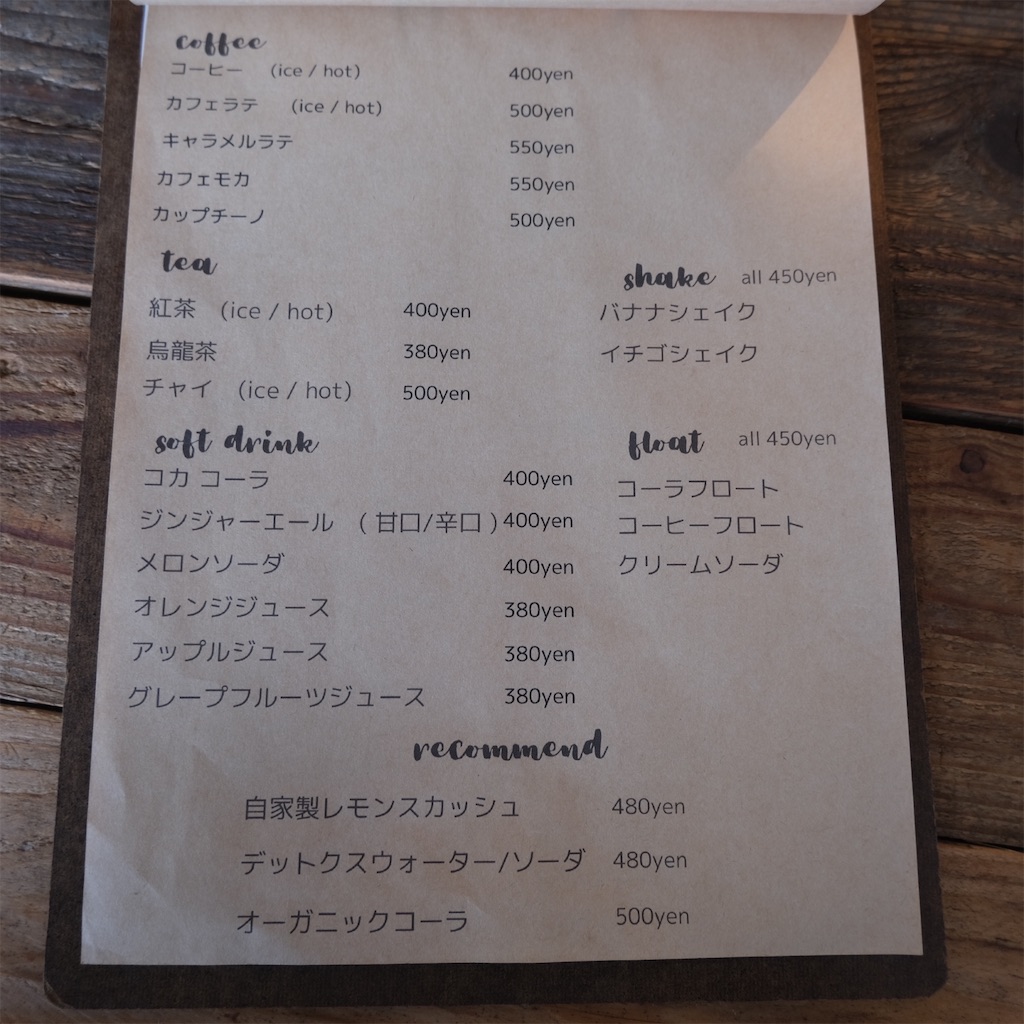 coffee
コーヒー (ice / hot) 400yen
カフェラテ (ice / hot) 500yen
キャラメルラテ 550yen
カフェモカ 550yen
カップチーノ 500yen
tea
紅茶 (ice / hot) 400yen
烏龍茶 380yen
チャイ (ice / hot) 500yen
shake all 450yen
バナナシェイク
イチゴシェイク
soft drink
コカ コーラ 400yen
ジンジャーエール (甘口/辛口) 400yen
メロンソーダ 400yen
オレンジジュース 380yen
アップルジュース 380yen
グレープフルーツジュース 380yen
float all 450yen
コーラフロート
コーヒーフロート
クリームソーダ
recommend
自家製レモンスカッシュ 480yen
デットクスウォーター/ソーダ 480yen
オーガニックコーラ 500yen